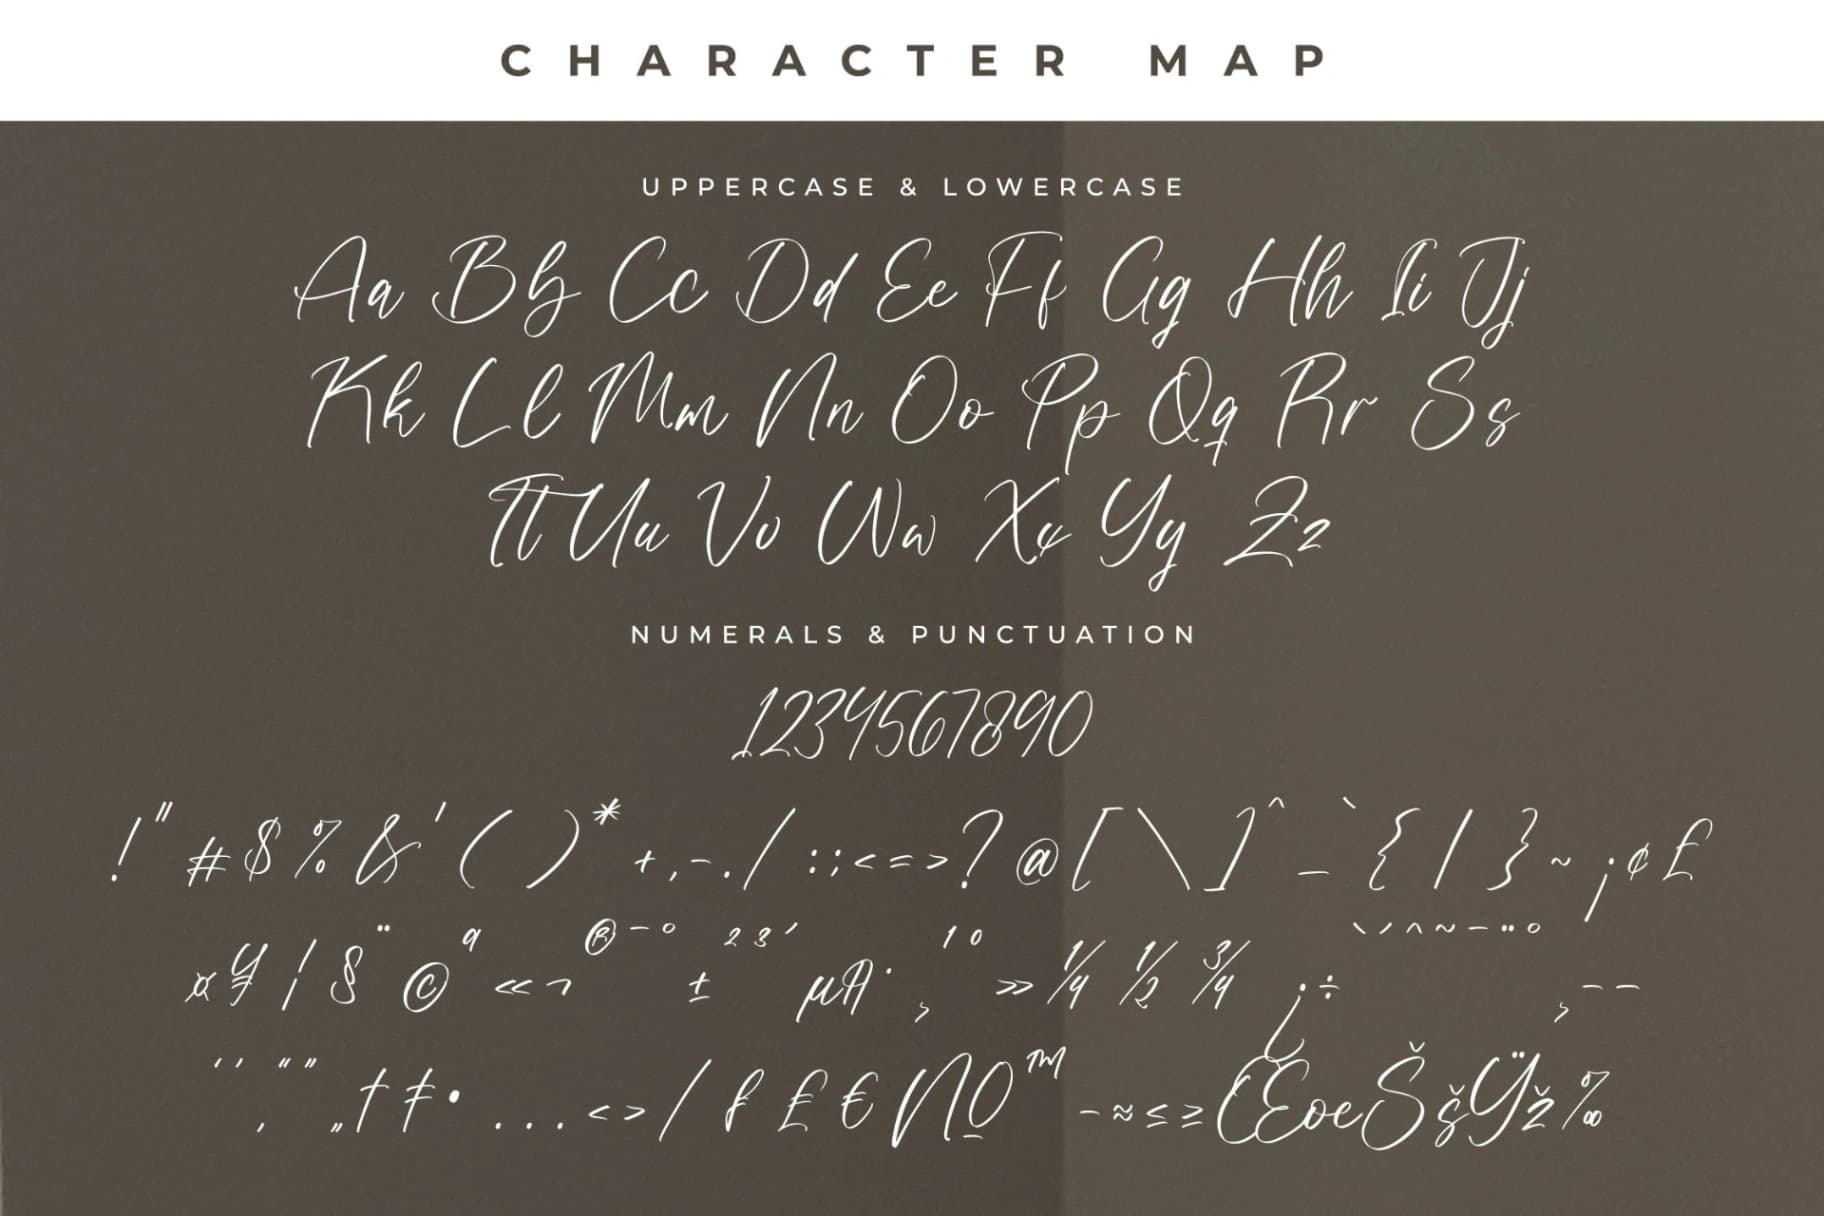 CHARACTER MAP
UPPERCASE & LOWERCASE
Aa Bb Cc Dd Ee Ff Gg Hh Ii Jj
Kk Ll Mm Nn Oo Pp Qq Rr Ss
Tt Uu Vv Ww Xx Yy Zz
NUMERALS & PUNCTUATION
1234567890
! " # $ % & ' ( ) * + , - . / : ; < = > ? @ [ \ ] ^ _ ` { | } ~ ¡ ¢ £
¤ ¥ ¦ § ¨ © ª « ¬ ® ¯ ° ± ² ³ ´ µ ¶ · ¸ ¹ º » ¼ ½ ¾ ¿ ÷ ` ´ ˆ ˜ ¯ ¨ ° ¸ – —
‘ ’ ‚ “ ” „ † ‡ • . . . ‹ › / ƒ £ € № ™ − ≈ ≤ ≥ Œ œ Š š Ÿ ž ‰